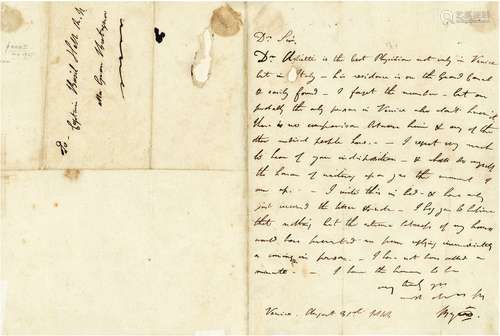 To - Captain Basil Hall R. N.
alla Gran Bretagna
Dr. Sir,
Dr. Aglietti is the best Physician not only in Venice
but in Italy - his residence is on the Grand Canal
& easily found - I forget the number - but am
probably the only person in Venice who don't know it
there is no comparison between him & any of the
other medical people here. - I regret very much
to hear of your indisposition - & shall do myself
the honour of waiting upon you the moment I
am up. - I write this in bed - & have only
just received the letter & note - I beg you to believe
that nothing but the extreme lateness of my hours
would have prevented me from replying immediately
or coming in person. - I have not been called a
minute. - I have the honour to be
very truly yrs
Byron
Venice, August 31st 1818